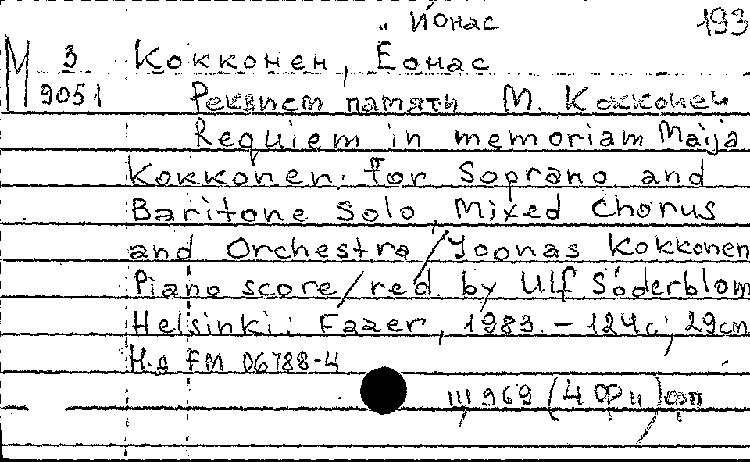 Йонас 193
М 3 Кокконен, Ёонас
9051 Реквием памяти М. Кокконен
Requiem in memoriam Maija
Kokkonen. For Soprano and
Baritone Solo, Mixed Chorus
and Orchestra / Joonas Kokkonen
Piano score / red. by Ulf Söderblom
Helsinki: Fazer, 1983. – 124 с; 29 cm
Н.д FM 06788-4
Ш 969 (4 Фи)